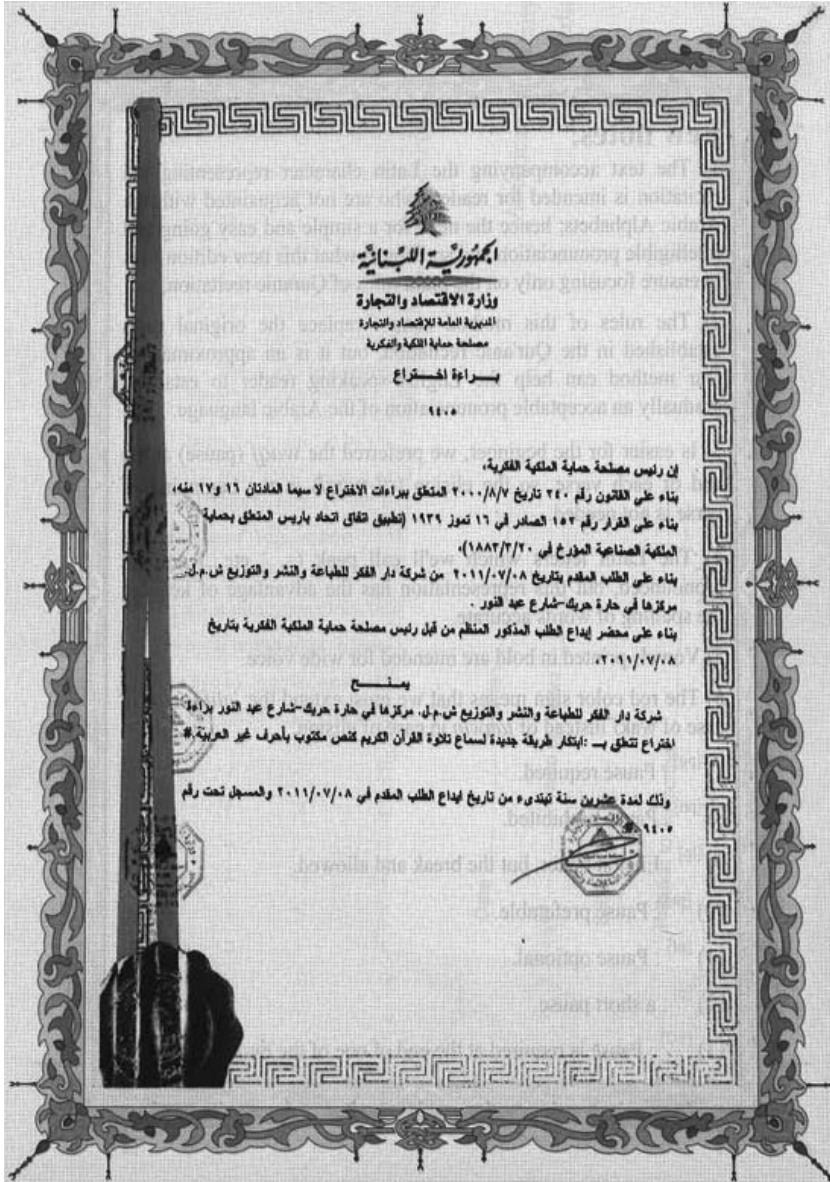 الجمهورية اللبنانية
وزارة الاقتصاد والتجارة
المديرية العامة للإقتصاد والتجارة
مصلحة حماية الملكية والفكرية
بـــراءة اخـــتراع
٩٤٠٥
إن رئيس مصلحة حماية الملكية الفكرية،
بناء على القانون رقم ٢٤٠ تاريخ ٢٠٠٠/٨/٧ المتعلق ببراءات الاختراع لا سيما المادتان ١٦ و١٧ منه،
بناء على القرار رقم ١٥٢ الصادر في ١٦ تموز ١٩٣٩ (تطبيق اتفاق اتحاد باريس المتعلق بحماية
الملكية الصناعية المؤرخ في ١٨٨٣/٣/٢٠)،
بناء على الطلب المقدم بتاريخ ٢٠١١/٠٧/٠٨ من شركة دار الفكر للطباعة والنشر والتوزيع ش.م.ل.
مركزها في حارة حريك-شارع عبد النور .
بناء على محضر إيداع الطلب المذكور المنظم من قبل رئيس مصلحة حماية الملكية الفكرية بتاريخ
٢٠١١/٠٧/٠٨،
يمنـــــح
شركة دار الفكر للطباعة والنشر والتوزيع ش.م.ل. مركزها في حارة حريك-شارع عبد النور براءة
اختراع تتعلق بـــ :ابتكار طريقة جديدة لسماع تلاوة القرآن الكريم كنص مكتوب بأحرف غير العربية.#
وذلك لمدة عشرين سنة تبتدىء من تاريخ ايداع الطلب المقدم في ٢٠١١/٠٧/٠٨ والمسجل تحت رقم
٩٤٠٥.#